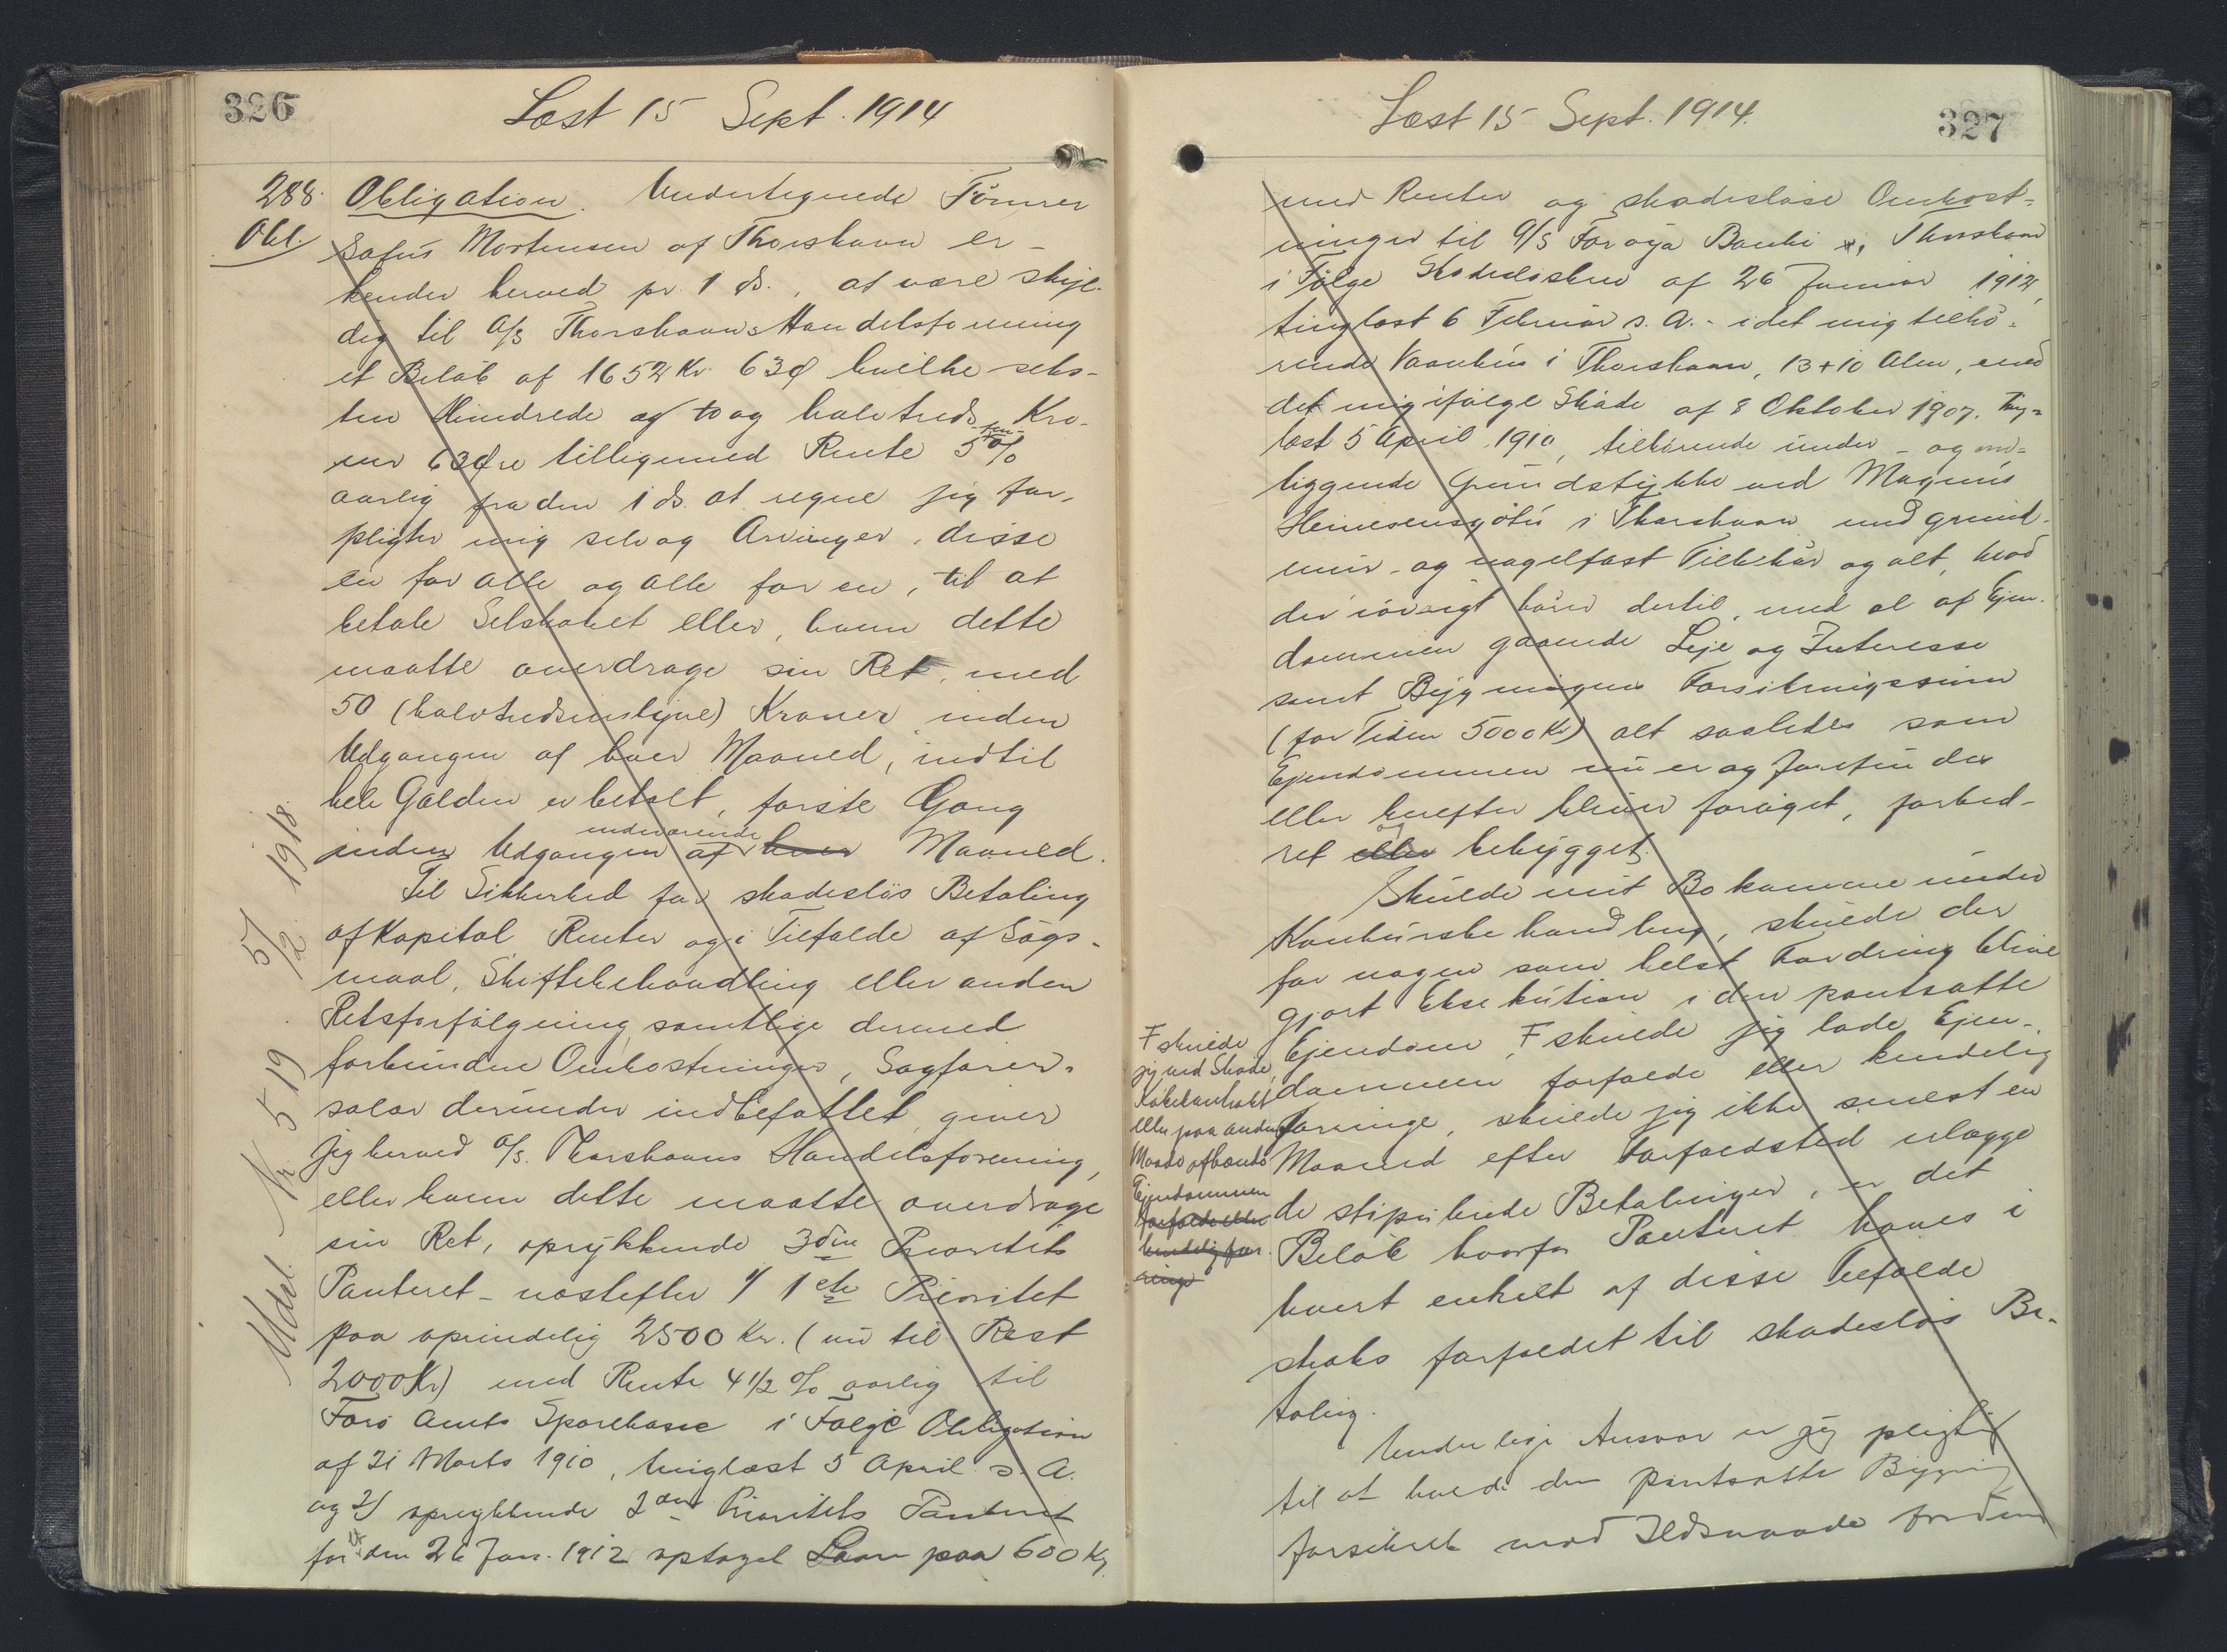 326
Læst 15 Sept. 1914
288.
Obl.
Obligation. Undertegnede Tömrer
Sofus Mortensen af Thorshavn er-
kender herved pr. 1 ds., at være skyl-
dig til A/S Thorshavns Handelsforening
et Beløb af 1652 Kr. 63 Ø hvilke seks-
ten Hundrede og to og halvtreds Kro-
ner 63 Øre tilligemed Rente 5 fem %
aarlig fra den 1 ds. at regne jeg for-
pligter mig selv og Arvinger, disse
en for alle og alle for en, til at
betale Selskabet eller, hvem dette
maatte overdrage sin Ret, med
50 (halvtredsindstyve) Kroner inden
Udgangen af hver Maaned, indtil
hele Gælden er betalt, første Gang
inden Udgangen af indeværende hver Maaned.
Til Sikkerhed for skadesløs Betaling
af Kapital Renter og i Tilfælde af Søgs-
maal, Skiftebehandling eller anden
Retsforfølgning samtlige dermed
forbundne Omkostninger, Sagfører-
salær derunder indbefattet, giver
jeg herved A/S. Thorshavns Handelsforening,
eller hvem dette maatte overdrage
sin Ret, oprykkende 3die Prioritets
Panteret - næstefter 1/ 1ste Prioritet
paa oprindelig 2500 Kr. (nu til Rest
2000 Kr) med Rente 4 1/2 % aarlig til
Færø Amts Sparekasse i Følge Obligation
af 31 Marts 1910, tinglæst 5 April s. A.
og 2/ oprykkende 2den Prioritets Panteret
for et den 26 Jan. 1912 optaget Laan paa 600 Kr.
Udsl. Nr. 519. 5/2 1918.
Læst 15 Sept. 1914.
327
med Renter og skadesløse Omkost-
ninger til A/S Føroya Banki, Thorshavn
i Følge Skadesløsbrev af 26 Januar 1912,
tinglæst 6 Februar s. A. - i det mig tilhø-
rende Vaanhus i Thorshavn, 13 + 10 Alen, med
det mig ifølge Skøde af 8 Oktober 1907. Ting-
læst 5 April 1910, tilhørende under- og om-
liggende Grundstykke ved Magnus
Heinesensgötu i Thorshavn med grund-
mur- og nagelfast Tilbehør og alt, hvad
der iøvrigt hører dertil, med al af Ejen-
dommen gaaende Leje og Interesse
samt Bygningens Forsikringssum
(for Tiden 5000 Kr) alt saaledes som
Ejendommen nu er og forefindes
eller herefter bliver forøget, forbed-
ret eller og bebygget.
Skulde mit Bo komme under
Konkursbehandling, skulde der
for nogen som helst Fordring blive
gjort Eksekution i den pantsatte
Ejendom, F skulde jeg lade Ejen-
dommen forfalde eller kendelig
forringe, skulde jeg ikke senest en
Maaned efter Forfaldstid erlægge
de stipulerede Betalinger, er det
Beløb hvorfor Panteret haves i
hvert enkelt af disse Tilfælde
straks forfaldet til skadesløs Be-
taling.
F skulde
jeg ved Skøde,
Købekontrakt
eller paa anden
Maade afhænde
Ejendommen
forfalde eller
kendelig for-
ringe
Under lige Ansvar er jeg pligtig
til at holde den pantsatte Bygning
forsikret mod Ildsvaade for dens